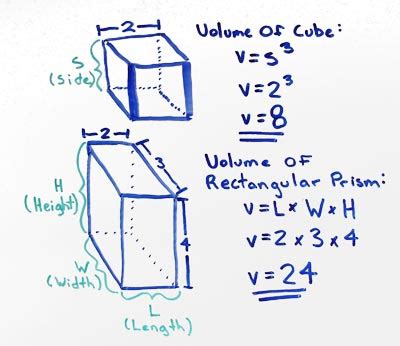 2
S
(side)
Volume Of Cube:
V=S³
V=2³
V=8
2
3
H
(Height)
4
W
(Width)
L
(Length)
Volume OF
Rectangular Prism:
V=L×W×H
V=2×3×4
V=24